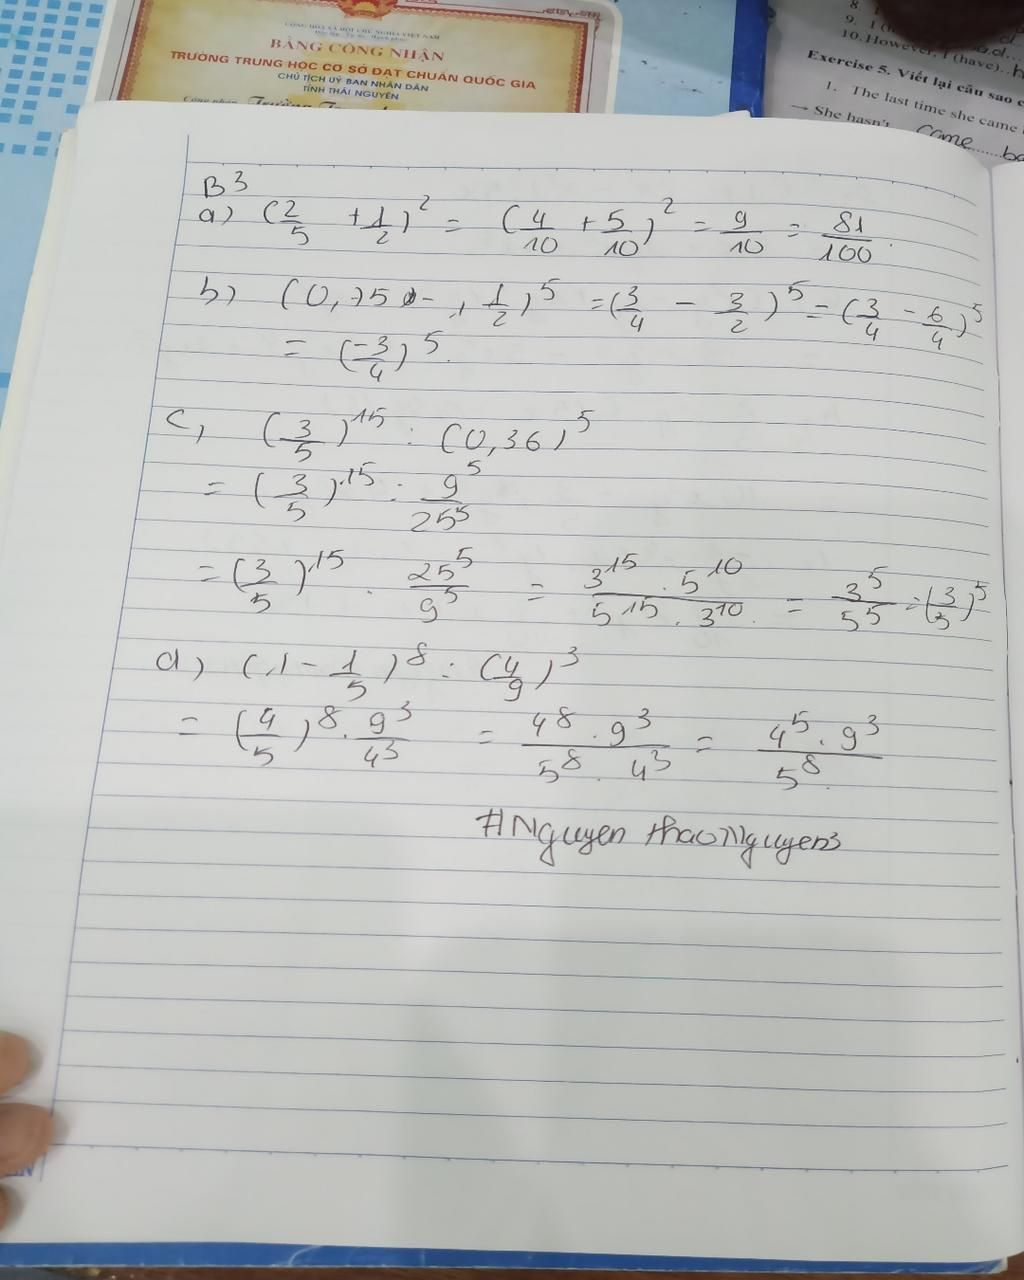 CỘNG HÒA XÃ HỘI CHỦ NGHĨA VIỆT NAM
BẰNG CÔNG NHẬN
TRƯỜNG TRUNG HỌC CƠ SỞ ĐẠT CHUẨN QUỐC GIA
CHỦ TỊCH UỶ BAN NHÂN DÂN
TỈNH THÁI NGUYÊN
Công nhận
8.
9. I
10. However, I (have)..
Exercise 5. Viết lại câu sao
1. The last time she came
→ She hasn't come
B3
a) (2/5 + 1/2)^2 = (4/10 + 5/10)^2 = 9/10 = 81/100.
b) (0,75 - 1 1/2)^5 = (3/4 - 3/2)^5 = (3/4 - 6/4)^5
= (-3/4)^5.
c, (3/5)^15 : (0,36)^5
= (3/5)^15 : 9^5/25^5
= (3/5)^15 . 25^5/9^5 = 3^15 . 5^10/5^15 . 3^10. = 3^5/5^5 = (3/5)^5
d) (1 - 1/5)^8 : (4/9)^3
= (4/5)^8 . 9^3/4^3 = 4^8 . 9^3/5^8 . 4^3 = 4^5 . 9^3/5^8.
#Nguyen thaoNguyen3